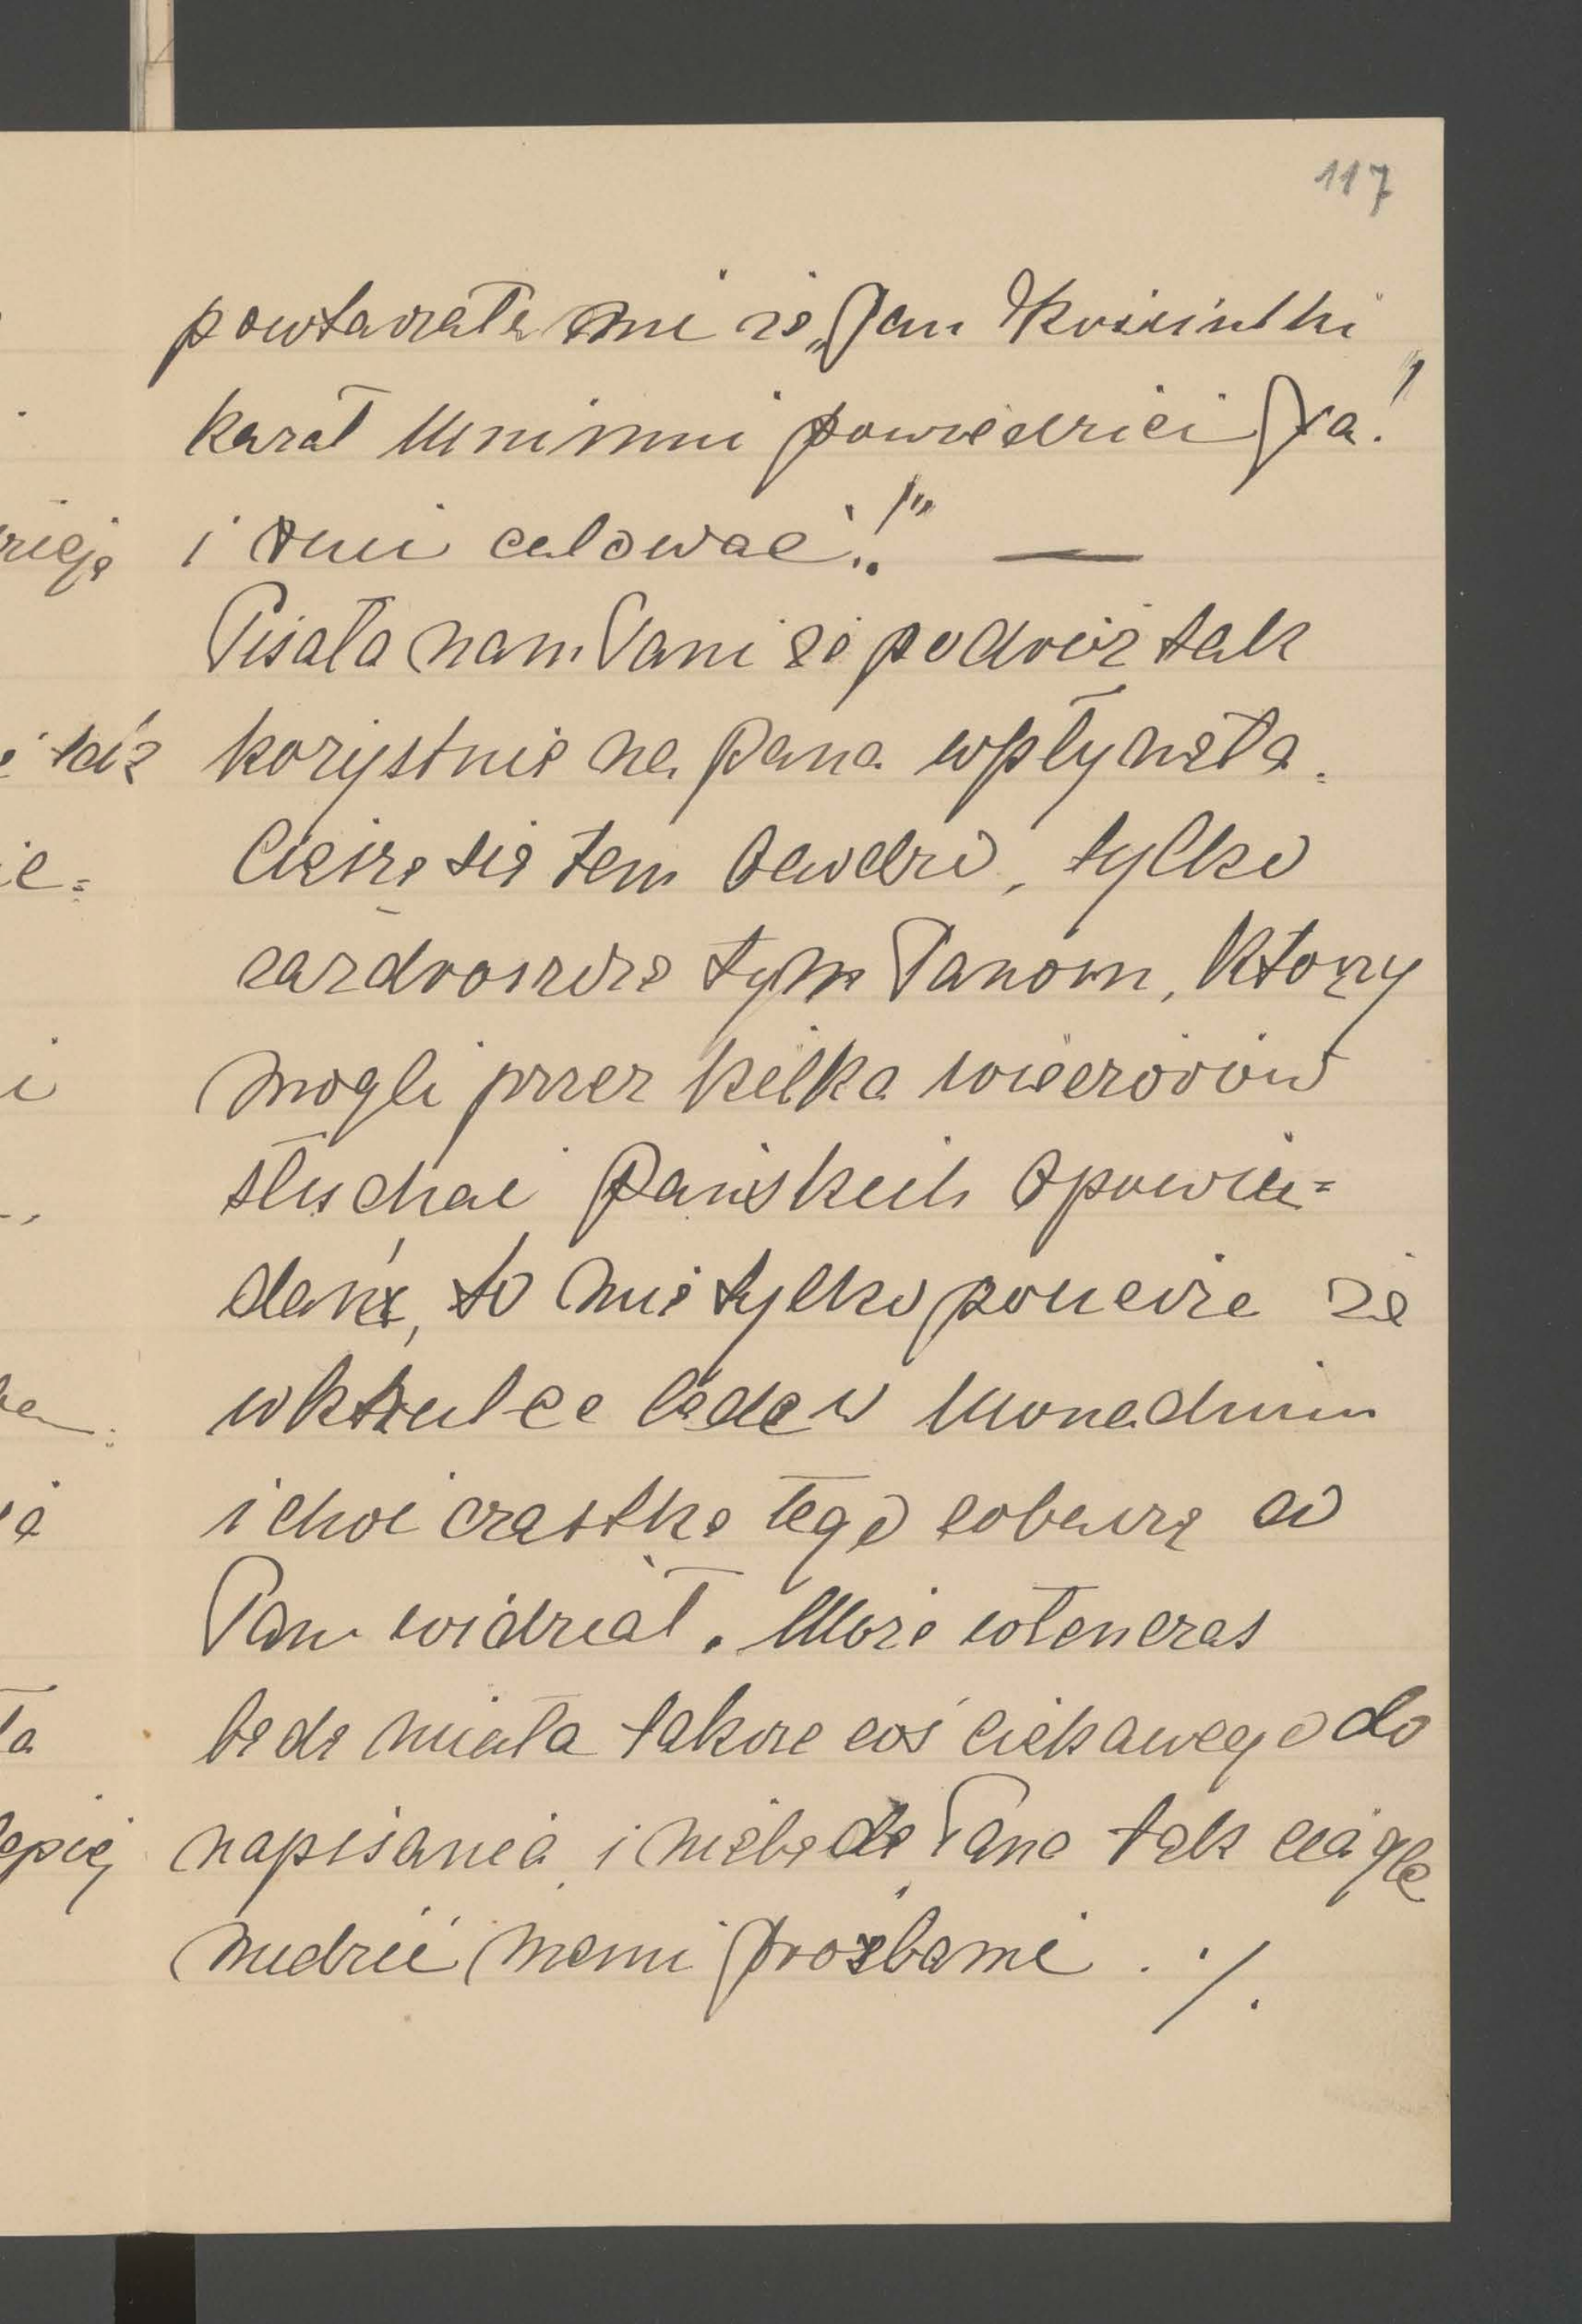 117
powtarzała mi że „Jan Kościelski
kazał Mnimni powiedzieć Pa!"
i … całować.!" —
Pisała nam Pani że podróż tak
korzystnie na Pana wpłynęła.
Cieszę się tem bardzo, tylko
zazdroszczę tym Panom, którzy
mogli przez kilka wieczorów
słuchać Pańskich opowia=
dań, to mię tylko pociesza że
wkrutce będę w Monachium
i choć cząstkę tego zobaczę co
Pan widział. Może wtenczas
będę miała także coś ciekawego do
napisania i nie będę Pana tak ciągle
nudzić memi prośbami. ./.